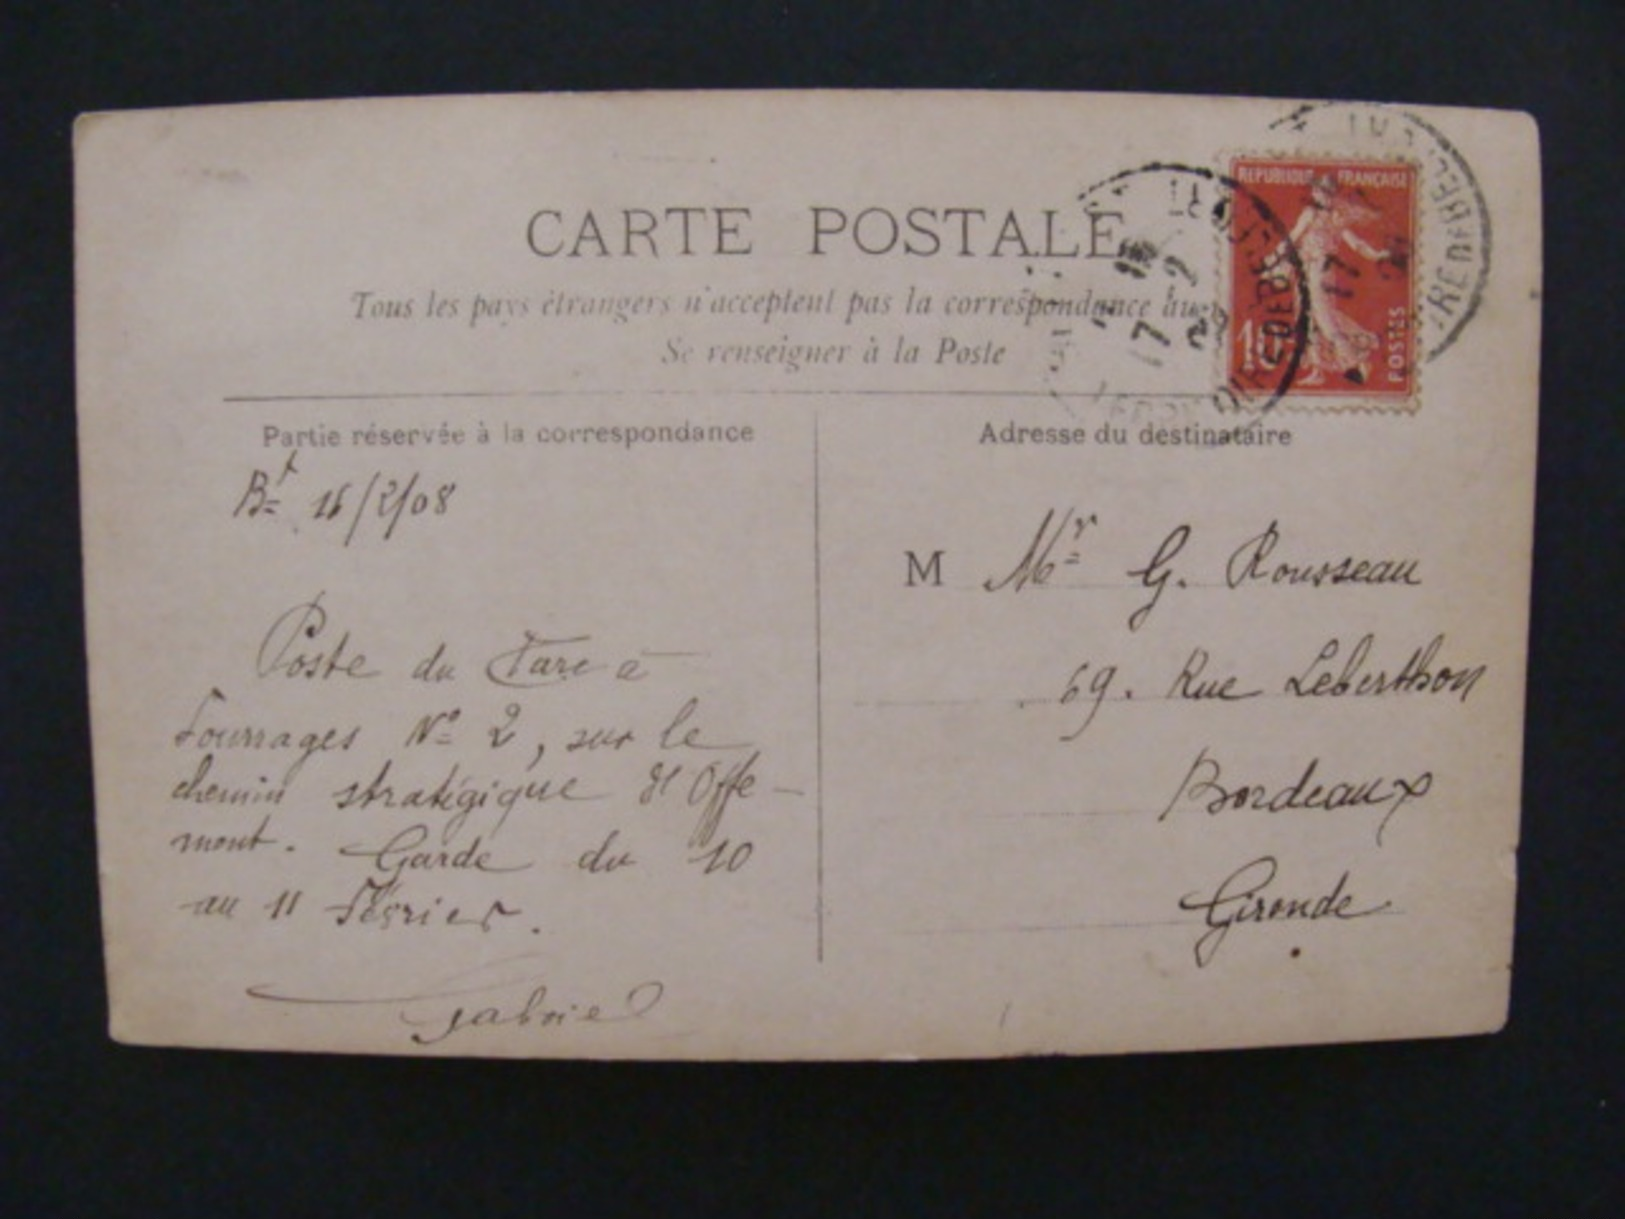 CARTE POSTALE
Tous les pays étrangers n'acceptent pas la correspondance au
Se renseigner à la Poste
REPUBLIQUE FRANÇAISE
POSTES
10
17
2
17
Partie réservée à la correspondance
Adresse du destinataire
Bt 16/2/08
Poste du Parc à
Fourrages No 2, sur le
chemin stratégique d'Offe-
mont. Garde du 10
au 11 Février.
Gabriel
M Mr G. Rousseau
69. Rue Leberthon
Bordeaux
Gironde